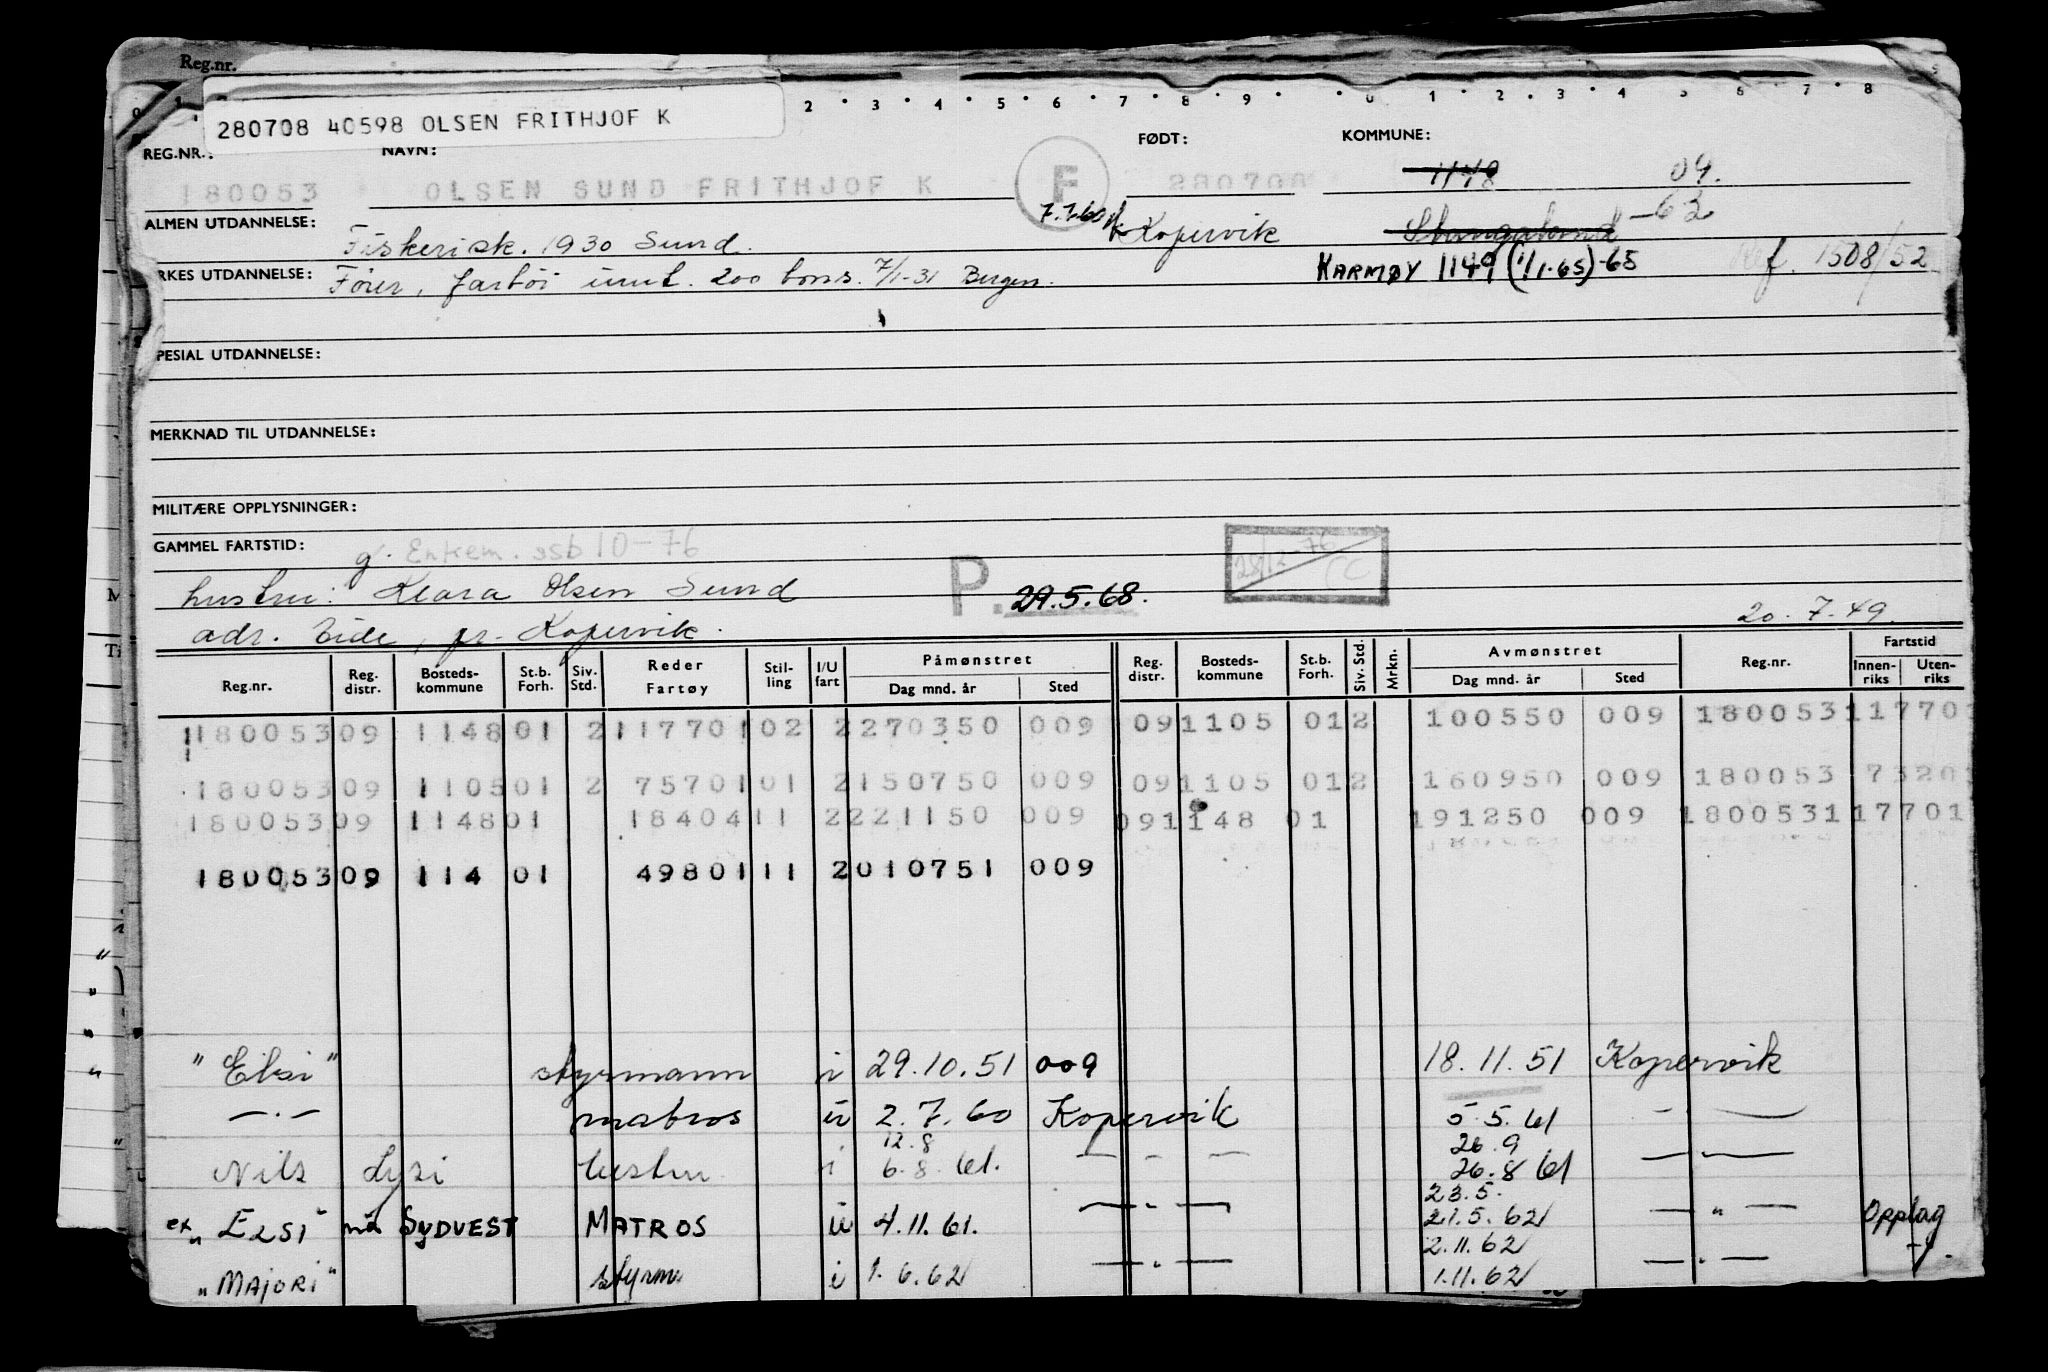 Reg.nr.
280708 40598 OLSEN FRITHJOF K
2 · 3 · 4 · 5 · 6 · 7 · 8 · 9 · 0 1 · 2 · 3 · 4 5 6 · 7 · 8
REG.NR.: NAVN: FØDT: KOMMUNE:
180053 OLSEN SUND FRITHJOF K F 280708 1148 04.
ALMEN UTDANNELSE: Fiskerisk. 1930 Sund. 7.7.60 Kopervik Stangaland -62
YRKES UTDANNELSE: Fører, fartøi inntil 200 tons. 7/1-31 Bergen. KARMØY 1149 (1/1-65) -65 Ref. 1508/52
SPESIAL UTDANNELSE:
MERKNAD TIL UTDANNELSE:
MILITÆRE OPPLYSNINGER:
GAMMEL FARTSTID: g. Enkem. ssb 10-76
28/12-76 CC
hustru: Klara Olsen Sund P. 29.5.68.
adr. Eide, pr. Kopervik. 20.7.49.
Reg.nr. Reg. distr. Bosteds-kommune St.b. Forh. Siv. Std. Reder Fartøy Stil-ling I/U fart Påmønstret Dag mnd. år Sted Reg. distr. Bosteds-kommune St.b. Forh. Siv. Std. Mrkn. Avmønstret Dag mnd. år Sted Reg.nr. Fartstid Innen-riks Uten-riks
180053 09 1148 01 2 117701 02 2 270350 009 09 1105 01 2 100550 009 180053 117701
180053 09 1105 01 2 75701 01 2 150750 009 09 1105 01 2 160950 009 180053 73201
180053 09 1148 01 18404 11 2 221150 009 09 1148 01 191250 009 180053 117701
180053 09 114 01 49801 11 2 010751 009
"Elsi" styrmann i 29.10.51 009 18.11.51 Kopervik
— " — matros u 2.7.60 Kopervik 5.5.61 — " —
12.8 26.9
Nils Lysi i 6.8.61. — " — 26.8.61 — " —
23.5.
ex "ELSI" nå SYDVEST MATROS u 4.11.61. — " — 21.5.62 — " — Opplag
2.11.62
"MAJORI" styrm i 1.6.62 — " — 1.11.62 — " —